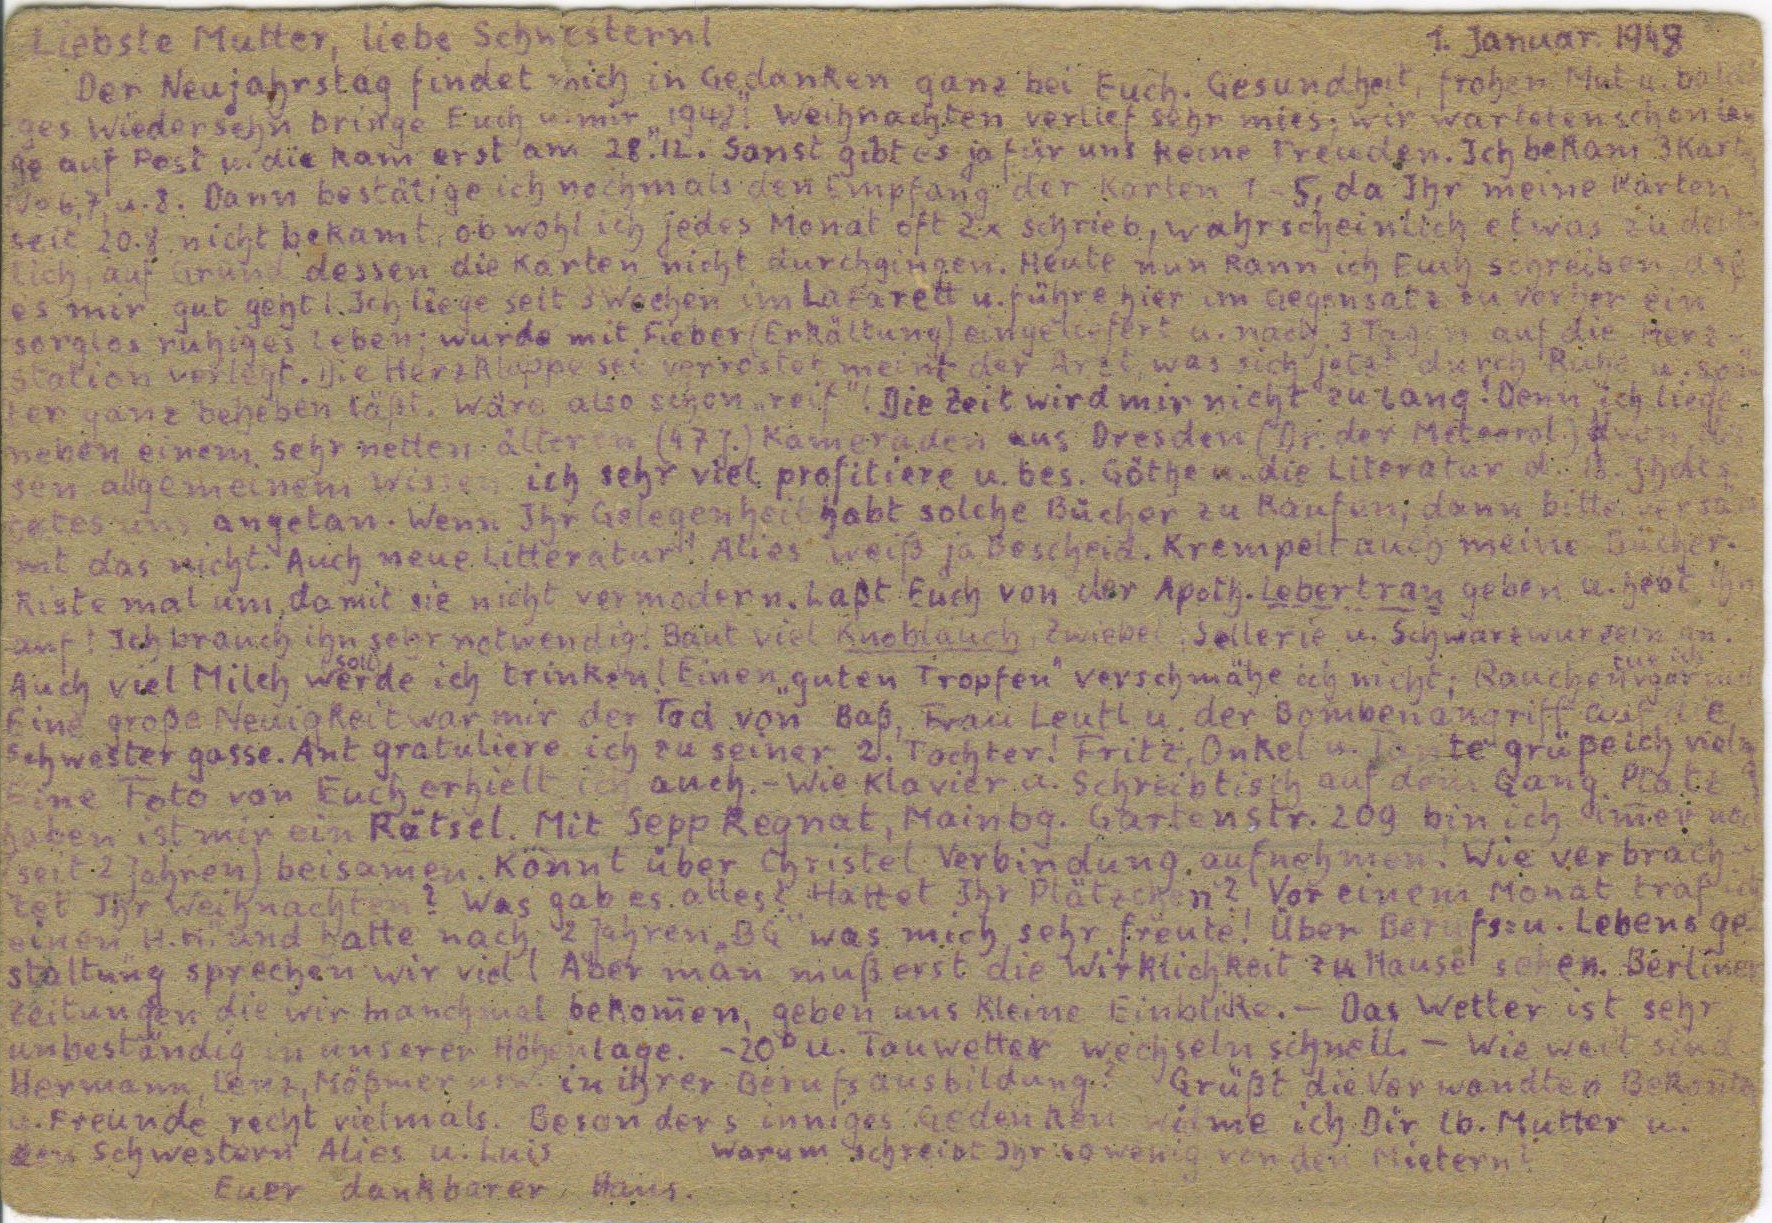 Liebste Mutter, liebe Schwestern! 1. Januar. 1948
Der Neujahrstag findet mich in Gedanken ganz bei Euch. Gesundheit, frohen Mut u. baldi
ges Wiedersehn bringe Euch u. mir „1948"! Weihnachten verlief sehr mies; wir warteten schon län
ge auf Post u. die kam erst am 28.12. Sonst gibt es ja für uns keine Freuden. Ich bekam 3 Kart
No 6, 7, u. 8. Dann bestätige ich nochmals den Empfang der Karten 1-5, da Ihr meine Karten
seit 20.8. nicht bekamt, obwohl ich jedes Monat oft 2x schrieb, wahrscheinlich etwas zu deut
lich, auf Grund dessen die Karten nicht durchgingen. Heute nun kann ich Euch schreiben, daß
es mir gut geht! Ich liege seit 3 Wochen im Lazarett u. führe hier im Gegensatz zu vorher ein
sorglos ruhiges Leben; wurde mit Fieber (Erkältung) eingeliefert u. nach 3 Tagen auf die Herz-
station verlegt. Die Herzklappe sei verrostet meint der Arzt, was sich jetzt durch Ruhe u. spä
ter ganz beheben läßt. Wäre also schon „reif"! Die Zeit wird mir nicht zu lang! Denn ich liege
neben einem sehr netten älteren (47 J.) Kameraden aus Dresden (Dr. der Meteorol.) von des
sen allgemeinem Wissen ich sehr viel profitiere u. bes. Göthe u. die Literatur d. 18. Jhdts.
angetan. Wenn Ihr Gelegenheit habt solche Bücher zu kaufen; dann bitte versäu
mt das nicht. Auch neue Litteratur! Alies weiß ja Bescheid. Krempelt auch meine Bücher-
kiste mal um, damit sie nicht vermodern. Laßt Euch von der Apoth. Lebertran geben u. hebt ihn
auf! Ich brauch ihn sehr notwendig! Baut viel Knoblauch, Zwiebel, Sellerie u. Schwarzwurzeln an.
Auch viel Milch werde soll ich trinken! Einen „guten Tropfen" verschmähe ich nicht; Rauchen tue ich gar nicht
Eine große Neuigkeit war mir der Tod von Baß, Frau Leutl u. der Bombenangriff auf die
Schwestergasse. Ant gratuliere ich zu seiner 2. Tochter! Fritz, Onkel u. Tante grüße ich vielm
Eine Foto von Euch erhielt ich auch. - Wie Klavier u. Schreibtisch auf dem Gang Platz
haben ist mir ein Rätsel. Mit Sepp Regnat, Mainbg. Gartenstr. 209 bin ich im̄er noch
(seit 2 Jahren) beisamen. Könnt über Christel Verbindung aufnehmen! Wie verbrach-
tet Ihr Weihnachten? Was gab es alles? Hattet Ihr Plätzchen? Vor einem Monat traf ich
einen H.H. und hatte nach 2 Jahren „BG" was mich sehr freute! Über Berufs- u. Lebensge-
staltung sprechen wir viel! Aber man muß erst die Wirklichkeit zu Hause sehen. Berliner
Zeitungen die wir manchmal bekom̄en, geben uns kleine Einblike. - Das Wetter ist sehr
unbeständig in unserer Höhenlage. -20° u. Tauwetter wechseln schnell. - Wie weit sind
Hermann, Lenz, Mößmer usw. in ihrer Berufsausbildung? Grüßt die Verwandten Bekan̄te
u. Freunde recht vielmals. Besonders inniges Gedenken widme ich Dir lb. Mutter u.
den Schwestern Alies u. Luis Warum schreibt Ihr so wenig von den Mietern!
Euer dankbarer Hans.